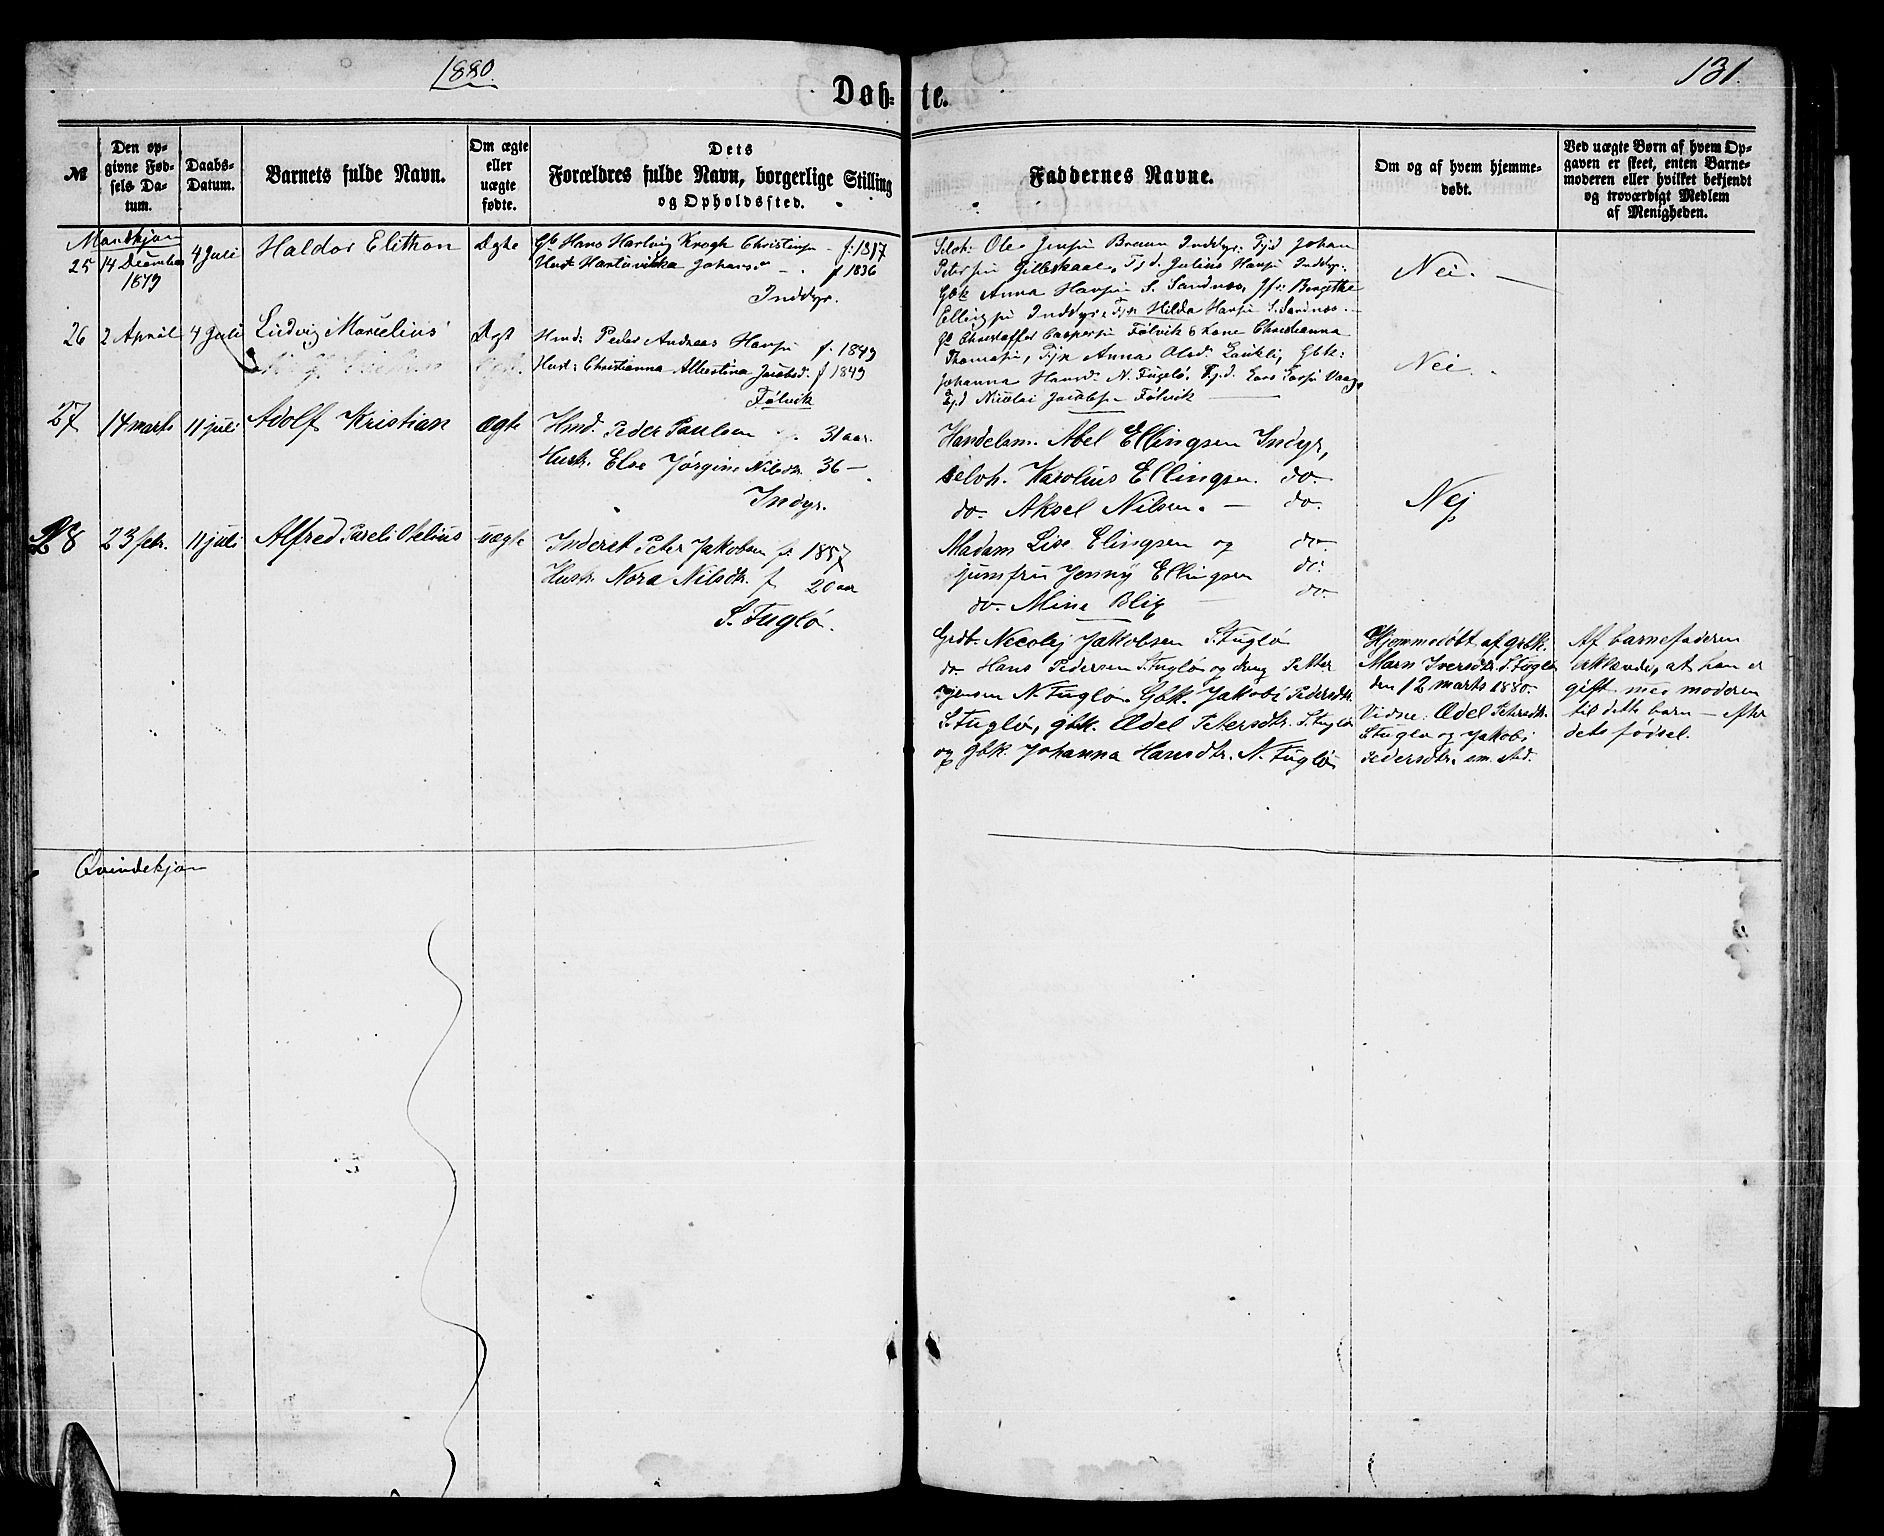 1880.
131.
Døbte.
№
Den opgivne Fødsels Datum.
Daabs-Datum.
Barnets fulde Navn.
Om ægte eller uægte fødte.
Dets Forældres fulde Navn, borgerlige Stilling og Opholdssted.
Faddernes Navne.
Om og af hvem hjemmedøbt.
Ved uægte Børn af hvem Opgaven er skeet, enten Barnemoderen eller hvilket bekjendt og troværdigt Medlem af Menigheden.
Mandkjøn
25
14 December
1879
4 Juli
Haldor Elithon
Ægte
Gb Hans Hartvig Krogh Christensen f. 1817
Hust Hartvikka Johans f 1836
Inddyr.
Selvh: Ole Jensen Breum Inddyr. Tjd Johan
Petersen Gilleskaal, Tjd. Julius Hansen Inddyr.
Gbk Anna Hansen S. Sandnæs, Jfr: Bergithe
Ellingsen Inddyr, Tjp Hilda Hansen S. Sandnæs.
Nei.
26
2 April
4 Juli
Ludvig Marcelius
Ægt
Hmd: Peder Andreas Hansen f. 1849
Hust: Christianna Albertina Jacobsd. f 1849
Følvik
Gb Christoffer Caspersen Følvik & Kone Christianna
Thomasen, Tjp Anna Olsd. Laukli, Gbk:
Johanna Hansd. N. Fugelø. Tjd. Lars Larsen Vaag,
Tjd Nicolai Jacobsen Følvik
Nei.
27
14 marts
11 juli
Adolf Kristian
ægte
Hmd. Peder Paulsen 31 aar.
Hustr. Else Jørgine Nilsdtr 36 –
Indyr.
Handelsm. Abel Ellingsen Indyr,
selvh. Karolius Ellingsen do.
do. Aksel Nilsen. – do.
Madam Lise Elingsen og do.
jumfru Jenny Ellingsen do.
do. Mine Blix do.
Nej
28
23 febr.
11 juli
Alfred Pareli Otelius
uægte
Inderst Peter Jakobsen f. 1857
Hustr. Nora Nilsdtr. f 20 aar
S. Fuglø.
Grdb. Necolej Jakobsen S. Fuglø
do. Hans Pedersen S. Fuglø og dreng Petter
Jensen N. Fuglø. Gbk. Jakobi Pedersdtr.
S. Fuglø, gbk. Ædel Petersdtr. S. Fuglø
og Gbk. Johanna Hansdtr. N. Fuglø
Hjemmedøbt af grbk.
Marn Iversdtr. S. Fuglø
den 12 marts 1880.
Vidne: Ædel Petersdtr.
S. Fuglø og Jakobi
Pedersdtr. sm. sted.
Af barnefaderen
erklændes, at han er
gift med moderen
til dette barn – efter
dets fødsel.
Qvindekjøn